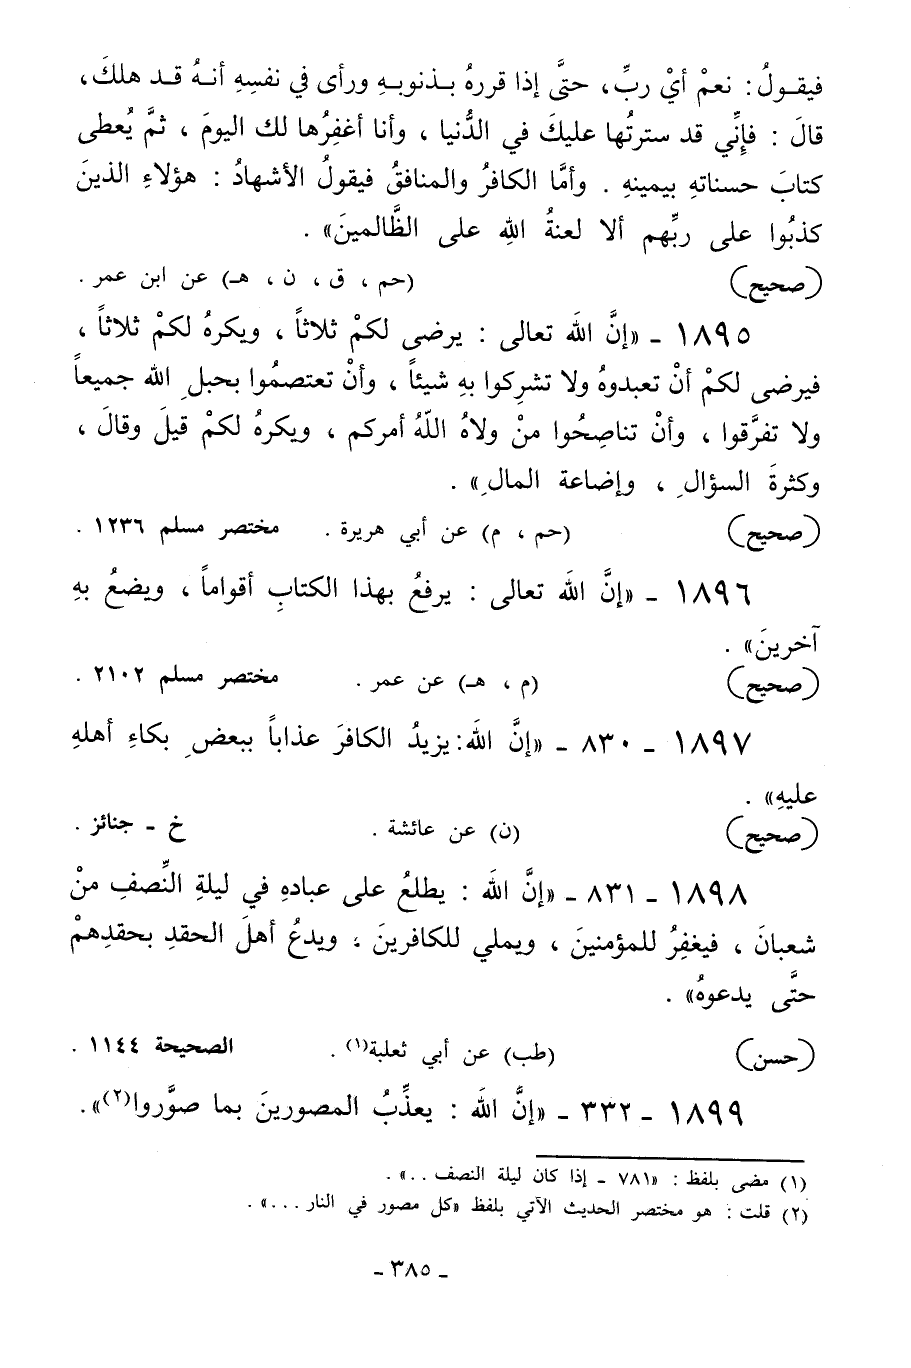 فيقـولُ : نعمْ أيْ ربِّ، حتَّى إذا قررهُ بـذنوبـهِ ورأى في نفسِهِ أنـهُ قـد هلكَ،
قالَ : فإنِّي قد سترتُها عليكَ في الدُّنيا ، وأنا أغفِرُها لك اليومَ ، ثمَّ يُعطى
كتابَ حسناتهِ بيمينهِ . وأمَّا الكافرُ والمنافقُ فيقولُ الأشهادُ : هؤلاءِ الذينَ
كذبُوا على ربِّهم ألا لعنةُ اللهِ على الظَّالمينَ» .
(صحيح) (حم ، ق ، ن ، هـ) عن ابن عمر .
١٨٩٥ - «إنَّ اللهَ تعالى : يرضى لكمْ ثلاثاً ، ويكرهُ لكمْ ثلاثاً ،
فيرضى لكمْ أنْ تعبدوهُ ولا تشرِكوا بهِ شيئاً ، وأنْ تعتصمُوا بحبلِ اللهِ جميعاً
ولا تفرَّقوا ، وأنْ تناصِحُوا منْ ولاهُ اللّهُ أمركم ، ويكرهُ لكمْ قيلَ وقالَ ،
وكثرةَ السؤالِ ، وإضاعة المالِ» .
(صحيح) (حم ، م) عن أبي هريرة . مختصر مسلم ١٢٣٦ .
١٨٩٦ - «إنَّ اللهَ تعالى : يرفعُ بهذا الكتابِ أقواماً ، ويضعُ بهِ
آخرينَ» .
(صحيح) (م ، هـ) عن عمر . مختصر مسلم ٢١٠٢ .
١٨٩٧ - ٨٣٠ - «إنَّ اللهَ: يزيدُ الكافرَ عذاباً ببعضِ بكاءِ أهلهِ
عليهِ» .
(صحيح) (ن) عن عائشة . خ - جنائز .
١٨٩٨ - ٨٣١ - «إنَّ اللهَ : يطلعُ على عبادهِ في ليلةِ النِّصفِ منْ
شعبانَ ، فيغفِرُ للمؤمنينَ ، ويملي للكافرينَ ، ويدعُ أهلَ الحقدِ بحقدِهمْ
حتَّى يدعوهُ» .
(حسن) (طب) عن أبي ثعلبة(١) . الصحيحة ١١٤٤ .
١٨٩٩ - ٣٣٢ - «إنَّ اللهَ : يعذِّبُ المصورينَ بما صوَّروا(٢)» .
(١) مضى بلفظ : «٧٨١ - إذا كان ليلة النصف . . .» .
(٢) قلت : هو مختصر الحديث الآتي بلفظ «كل مصور في النار . . . .» .
- ٣٨٥ -